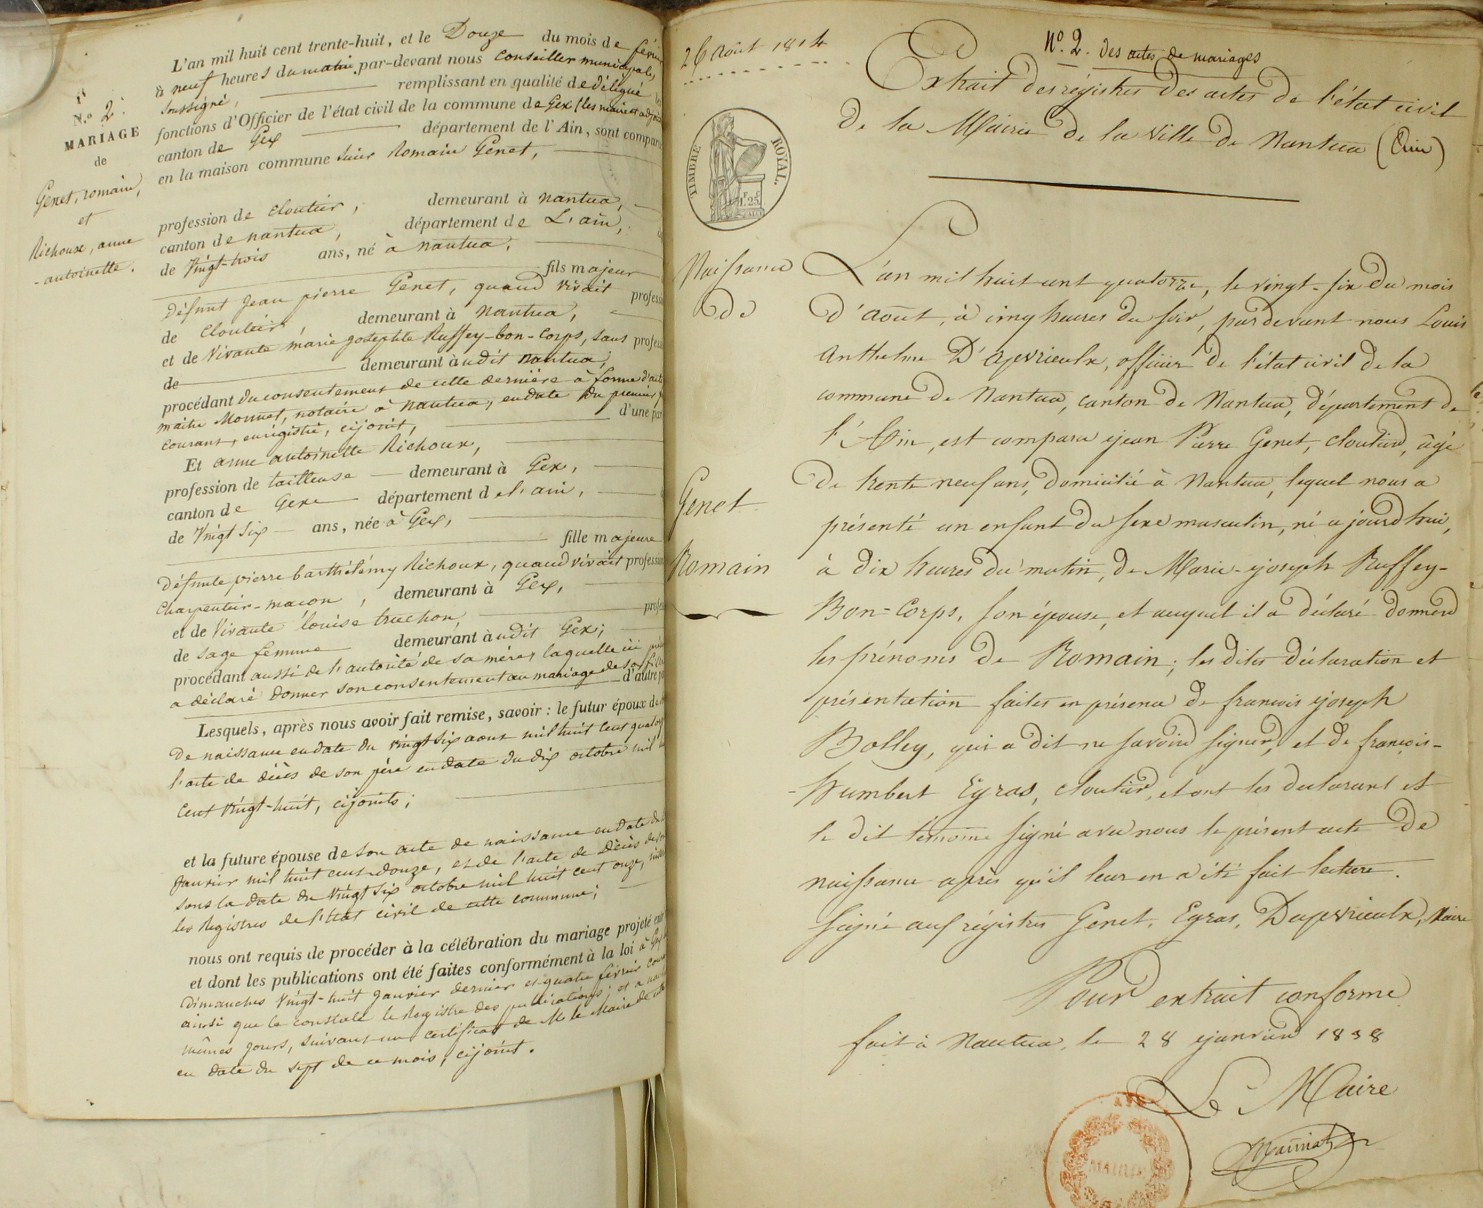 N.º 2.
MARIAGE
de
Genet, romain,
et
Richoux, anne
-antoinette.
L'an mil huit cent trente-huit, et le Douze du mois de février
à neuf heures du matin, par-devant nous Conseiller municipal,
soussigné, remplissant en qualité de délégué, les
fonctions d'Officier de l'état civil de la commune de Gex (les maire et adjoint
canton de Gex département de l'Ain, sont comparu
en la maison commune sieur Romain Genet,
profession de cloutier, demeurant à nantua,
canton de nantua, département de L'ain,
de vingt-trois ans, né à nantua,
fils majeur
Défunt jean pierre Genet, quand vivait profess
de cloutier, demeurant à Nantua,
et de vivante marie josephte Ruffey-bon-corps, sans profes
de demeurant àudit nantua,
procédant du consentement de cette dernière à forme d'acte
maitre Monnet, notaire à nantua, en date du premier
courant, enrégistré, cijoint, d'une par
Et anne antoinette Richoux,
profession de tailleuse demeurant à Gex,
canton de Gex département de l'ain,
de vingt six ans, née à Gex,
fille majeure
Défunt pierre barthélémy Richoux, quand vivait profession
Charpentier-macon, demeurant à Gex,
et de vivante louise truchon, profe
de sage femme demeurant àudit Gex;
procédant aussi de l'autorité de sa mère, laquelle ici
a déclaré donner son consentement au mariage de sa fille d'autre p
Lesquels, après nous avoir fait remise, savoir : le futur époux de
De naissance en date du vingt six aout mil huit cent quatorze
l'acte de décès de son père en date du dix octobre mil
cent vingt-huit, cijoints;
et la future épouse de son acte de naissance en date du
janvier mil huit cent douze, et de l'acte de décès de
sous la date du vingt six octobre mil huit cent onze,
les Registres de l'état civil de cette commune;
nous ont requis de procéder à la célébration du mariage projeté entr
et dont les publications ont été faites conformément à la loi à Gex
Dimanches vingt-huit janvier dernier et quatre février cour
ainsi que le constate le Registre des publications; et à nantua
mêmes jours, suivant un certificat de Mr le Maire de
en date du sept de ce mois, cijoint.
26 Août 1814
Nº. 2. des actes de mariages
Extrait des régistres des actes de l'état civil
de la Mairie de la ville de Nantua (Ain)
TIMBRE ROYAL.
1 F. 25 C.
Naissance
de
Genet
Romain
L'an mil huit cent quatorze, le vingt-six du mois
d'aout, à cinq heures du soir, par devant nous Louis
Anthelme D'apvrieulx, officier de l'état civil de la
commune de Nantua, canton de Nantua, département de
l'Ain, est comparu jean Pierre Genet, cloutier, âgé
de trente neuf ans, domicilié à Nantua, lequel nous a
présenté un enfant du sexe masculin, né aujourd'hui,
à dix heures du matin, de Marie-joseph Ruffey-
Bon-Corps, son épouse, et auquel il a déclaré donner
les prénoms de Romain; les dites déclaration et
présentation faites en présence de francois joseph
Bolley, qui a dit ne savoir signer, et de françois-
-humbert Eyras, cloutier, et ont les déclarant et
le dit témoin signé avec nous le présent acte de
naissance après qu'il leur en a été fait lecture.
Signé aux régistres Genet, Eyras, Dapvrieulx, Maire
Pour extrait conforme
fait à Nantua, le 28 janvier 1838
Le Maire
MAIRIE